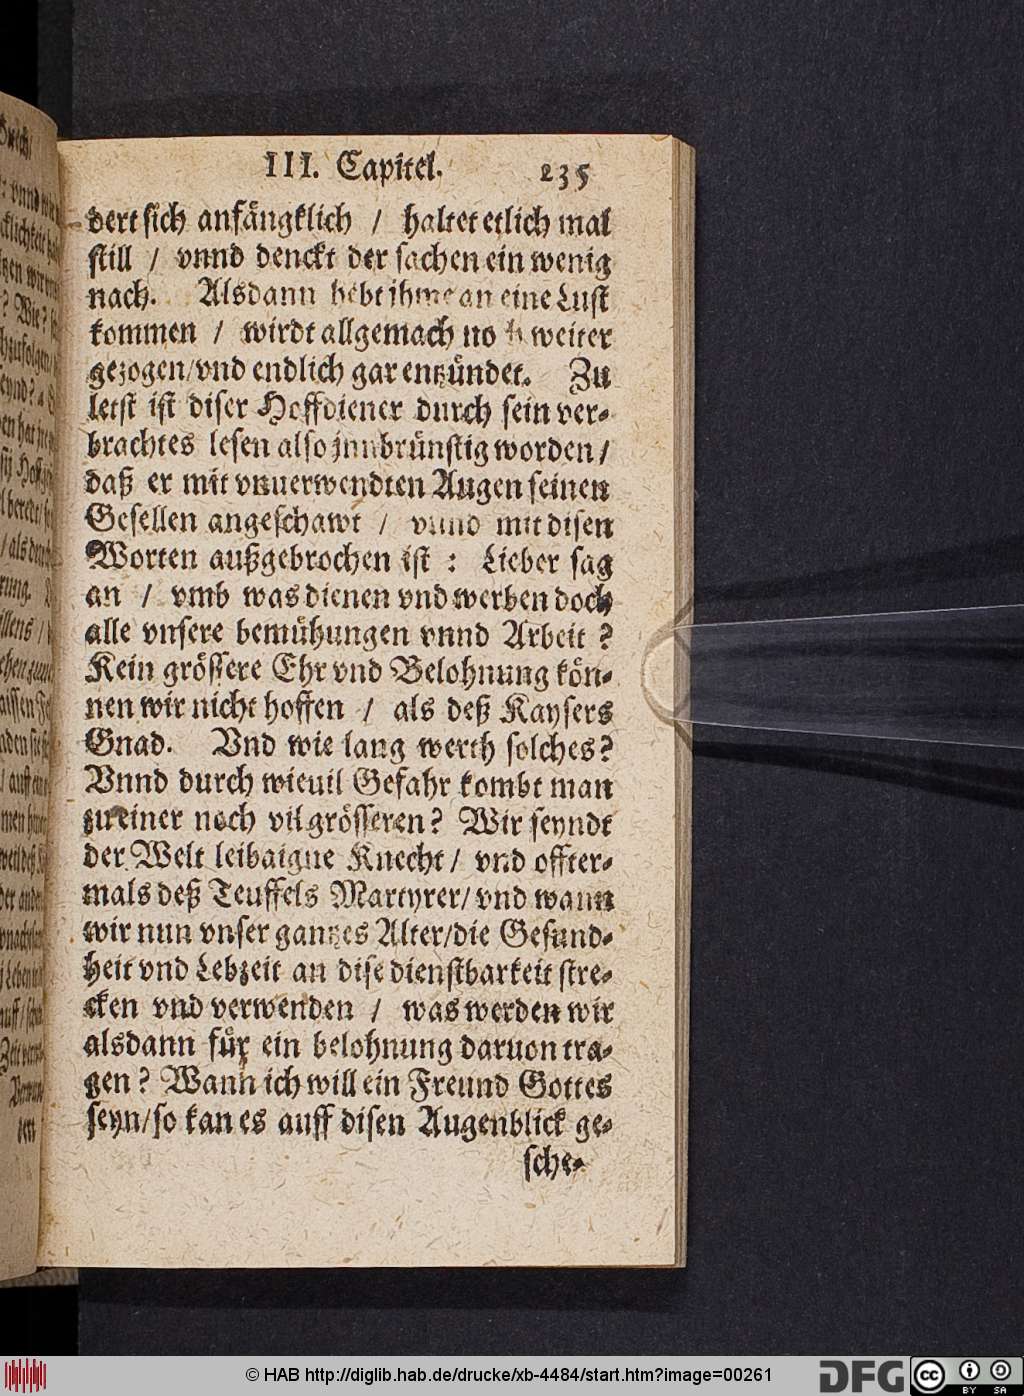 III. Capitel. 235
dert sich anfängklich / haltet etlich mal
still / vnnd denckt der sachen ein wenig
nach. Alsdann hebt jhme an eine Lust
kommen / wirdt allgemach noch weiter
gezogen/vnd endlich gar entzündet. Zu
letst ist diser Hoffdiener durch sein ver-
brachtes lesen also jnnbrünstig worden /
daß er mit vnuerwendten Augen seinen
Gesellen angeschawt / vnnd mit disen
Worten außgebrochen ist : Lieber sag
an / vmb was dienen vnd werben doch
alle vnsere bemühungen vnnd Arbeit ?
Kein grössere Ehr vnd Belohnung kön-
nen wir nicht hoffen / als deß Kaysers
Gnad. Vnd wie lang werth solches?
Vnnd durch wieuil Gefahr kombt man
zu einer noch vil grösseren? Wir seyndt
der Welt leibaigne Knecht / vnd offter-
mals deß Teuffels Martyrer/ vnd wann
wir nun vnser gantzes Alter/die Gesund-
heit vnd Lebzeit an dise dienstbarkeit stre-
cken vnd verwenden / was werden wir
alsdann für ein belohnung daruon tra-
gen ? Wann ich will ein Freund Gottes
seyn/so kan es auff disen Augenblick ge-
sche-
© HAB http://diglib.hab.de/drucke/xb-4484/start.htm?image=00261
DFG
cc BY SA